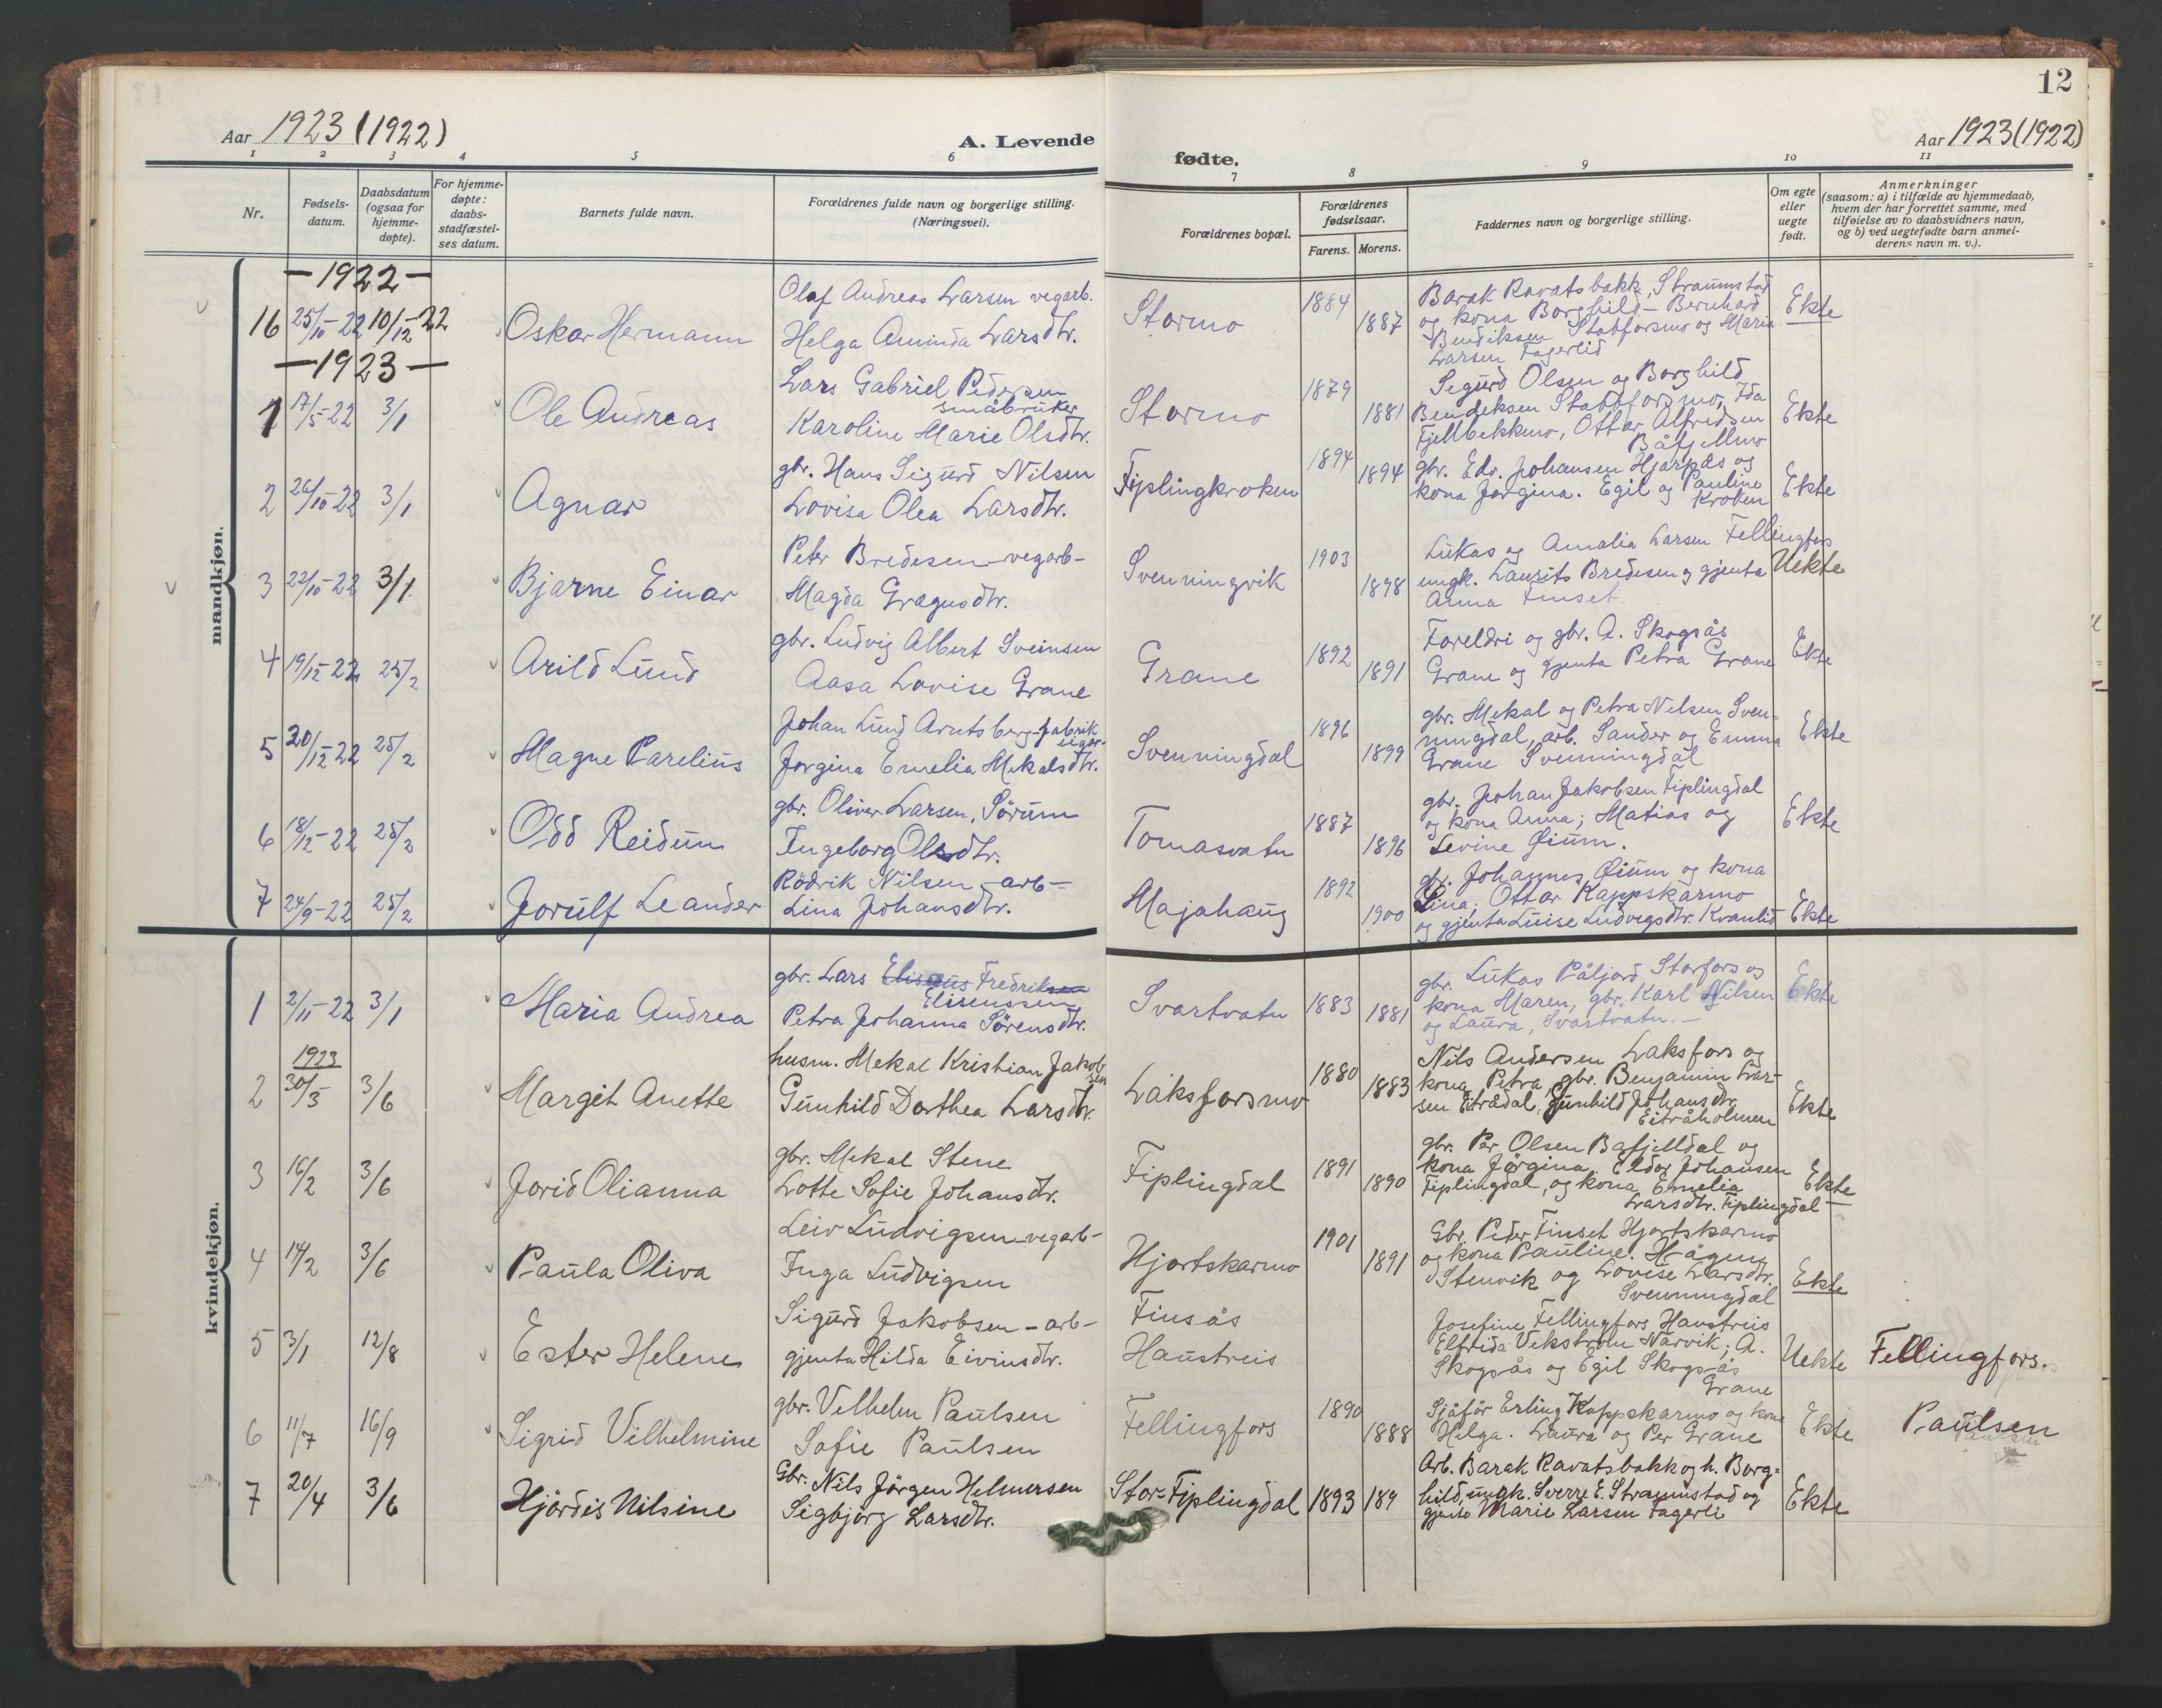 12
Aar 1923 (1922)
A. Levende
fødte.
Aar 1923 (1922)
1 2 3 4 5 6 7 8 9 10 11
Nr.
Fødsels-
datum.
Daabsdatum
(ogsaa for
hjemme-
døpte).
For hjemme-
døpte:
daabs-
stadfæstel-
ses datum.
Barnets fulde navn.
Forældrenes fulde navn og borgerlige stilling.
(Næringsvei).
Forældrenes bopæl.
Forældrenes
fødselsaar.
Farens. Morens.
Faddernes navn og borgerlige stilling.
Om egte
eller
uegte
født.
Anmerkninger
(saasom: a) i tilfælde av hjemmedaab,
hvem der har forrettet samme, med
tilføielse av to daabsvidners navn,
og b) ved uegtefødte barn anmel-
derens navn m. v.).
mandkjøn.
— 1922 —
16 25/10-22 10/12-22 Oskar Hermann
Olaf Andreas Larsen vegarb.
Helga Aminda Larsdtr.
Stormo 1884 1887
Barak Ravatsbakk, Straumstad
og kona Borghild - Bernhard
Bendiksen Stabforsmo og Maria
Larsen Fagerlid
Ekte
— 1923 —
1 17/5-22 3/1 Ole Andreas
Lars Gabriel Pedersen
småbruker
Karoline Marie Olsdtr.
Stormo 1879 1881
Segurd Olsen og Borghild
Bendeksen Stabbforsmo, Ida
Fjellbekkmo, Ottar Alfredsen
Båfjellmo
Ekte
2 26/10-22 3/1 Agnar
gbr. Hans Sigurd Nilsen
Lovisa Olea Larsdtr.
Fiplingkroken 1894 1894
gbr. Edv. Johansen Hjarpås og
kona Jørgina. Egil og Pauline
Kroken
Ekte
3 22/10-22 3/1 Bjarne Einar
Peter Bredesen - vegarb -
Magda Gragusdtr.
Svenningvik 1903 1898
Lukas og Amalia Larsen Fellingfors
ungk. Lausits Bredesen og gjenta
Anna Finset
Uekte
4 19/12-22 25/2 Arild Lund
gbr. Ludvig Albert Sveinsen
Aasa Lovise Grane
Grane 1892 1891
Foreldri og gbr. A. Skogsås
Grane og gjenta Petra Grane
Ekte
5 20/12-22 25/2 Magne Parelius
Johan Lund Arntsberg - fabrik
eigar
Jorgina Emelia Mekalsdtr.
Svenningdal 1896 1899
gbr. Mekal og Petra Nelsen Sven-
ningdal, arb. Sander og Emma
Grane Svenningdal
Ekte
6 18/12-22 25/2 Odd Reidun
gbr. Oliver Larsen, Sörum
Ingeborg Olsdtr.
Tomasvatn 1887 1896
gbr. Johan Jakobsen Fiplingdal
og kona Anna; Matias og
Levine Øium.
Ekte
7 24/9-22 25/2 Jorulf Leander
Rödrik Nilsen - arb -
Lina Johansdtr.
Majahaug 1892 1900
gbr. Johannes Øium og kona
Lina; Ottar Kappskarmo
og gjenta Luise Ludvegsdtr. Kvanlid
Ekte
kvindekjøn.
1 2/11-22 3/1 Maria Andrea
gbr. Lars Eliseus Fredriksen
Eliseussen
Petra Johanna Sörensdtr.
Svartvatn 1883 1881
gbr. Lukas Påljord Storfors og
kona Maren, gbr. Karl Nilsen
og Laura, Svartvatn. -
Ekte
1923
2 30/3 3/6 Margit Anette
husm. Mekal Kristian Jakob-
sen
Gunhild Dorthea Larsdtr.
Laksforsmo 1880 1883
Nils Andersen Laksfors og
kona Petra gbr. Benjamin Lar-
sen Eitrådal, Gunhild Johansdtr.
Eitråholmen
Ekte
3 16/2 3/6 Jorid Olianna
gbr. Mekal Stene
Lotte Sofie Johansdtr.
Fiplingdal 1891 1890
gbr. Per Olsen Bafjelldal og
kona Jörgina. Eldor Johansen
Fiplingdal, og kona Emelia
Larsdtr. Fiplingdal
Ekte
4 14/2 3/6 Paula Oliva
Leiv Ludvigsen - vegarb -
Inga Ludvigsen
Hjortskarmo 1901 1891
Gbr. Peder Finset Hjortskarmo
og kona Pauline. Hågen
Stenvik og Lovise Larsdtr.
Svenningdal
Ekte
5 3/1 12/8 Ester Helene
Sigurd Jakobsen - arb -
gjenta Hilda Eivinsdtr.
Finsås
Haustreis
Josefine Fellingfors Haustreis
Elfrida Vekstrøm Narvik, A.
Skogsås og Egil Skogsås
Grane
Uekte Fellingfors.
6 11/7 16/9 Sigrid Vilhelmine
gbr. Velhelm Paulsen
Sofie Paulsen
Fellingfors 1890 1888
Sjåför Erling Kappskarmo og kona
Helga. Laura og Per Grane
Ekte Paulsen
7 20/4 3/6 Hjördis Nilsine
Gbr. Nils Jörgen Helmersen
Sigbjörg Larsdtr.
Stor-Fiplingdal 1893 189
Arb. Barak Ravatsbakk og h. Borg=
hild, ungk. Sverre E. Straumstad og
gjenta Marie Larsen Fagerli
Ekte